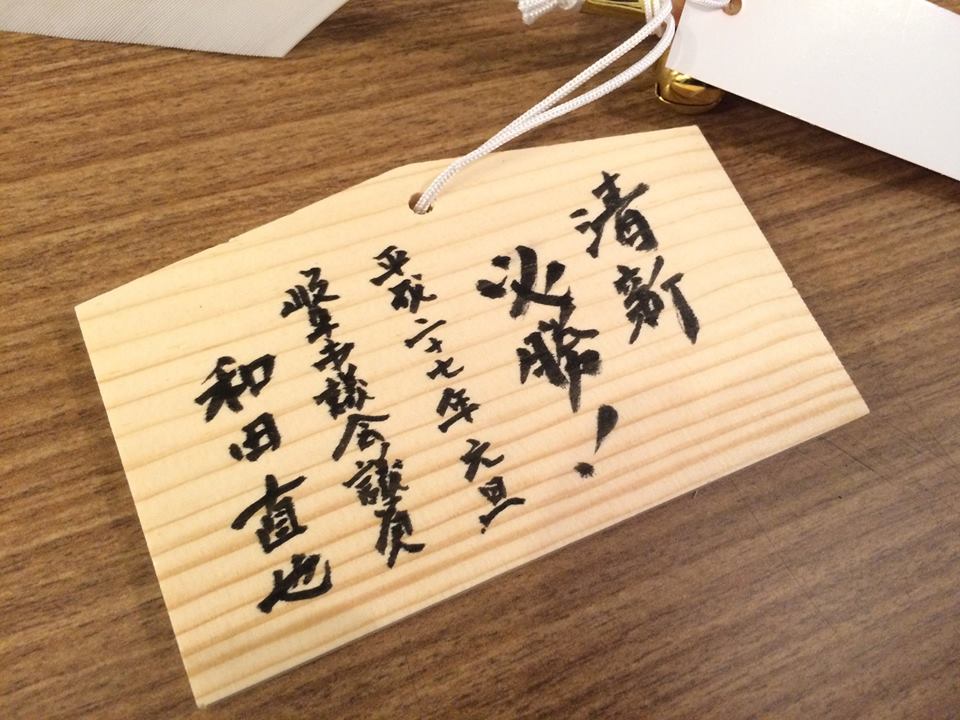 清新
必勝!
平成二十七年元旦
岐阜市議会議員
和田直也